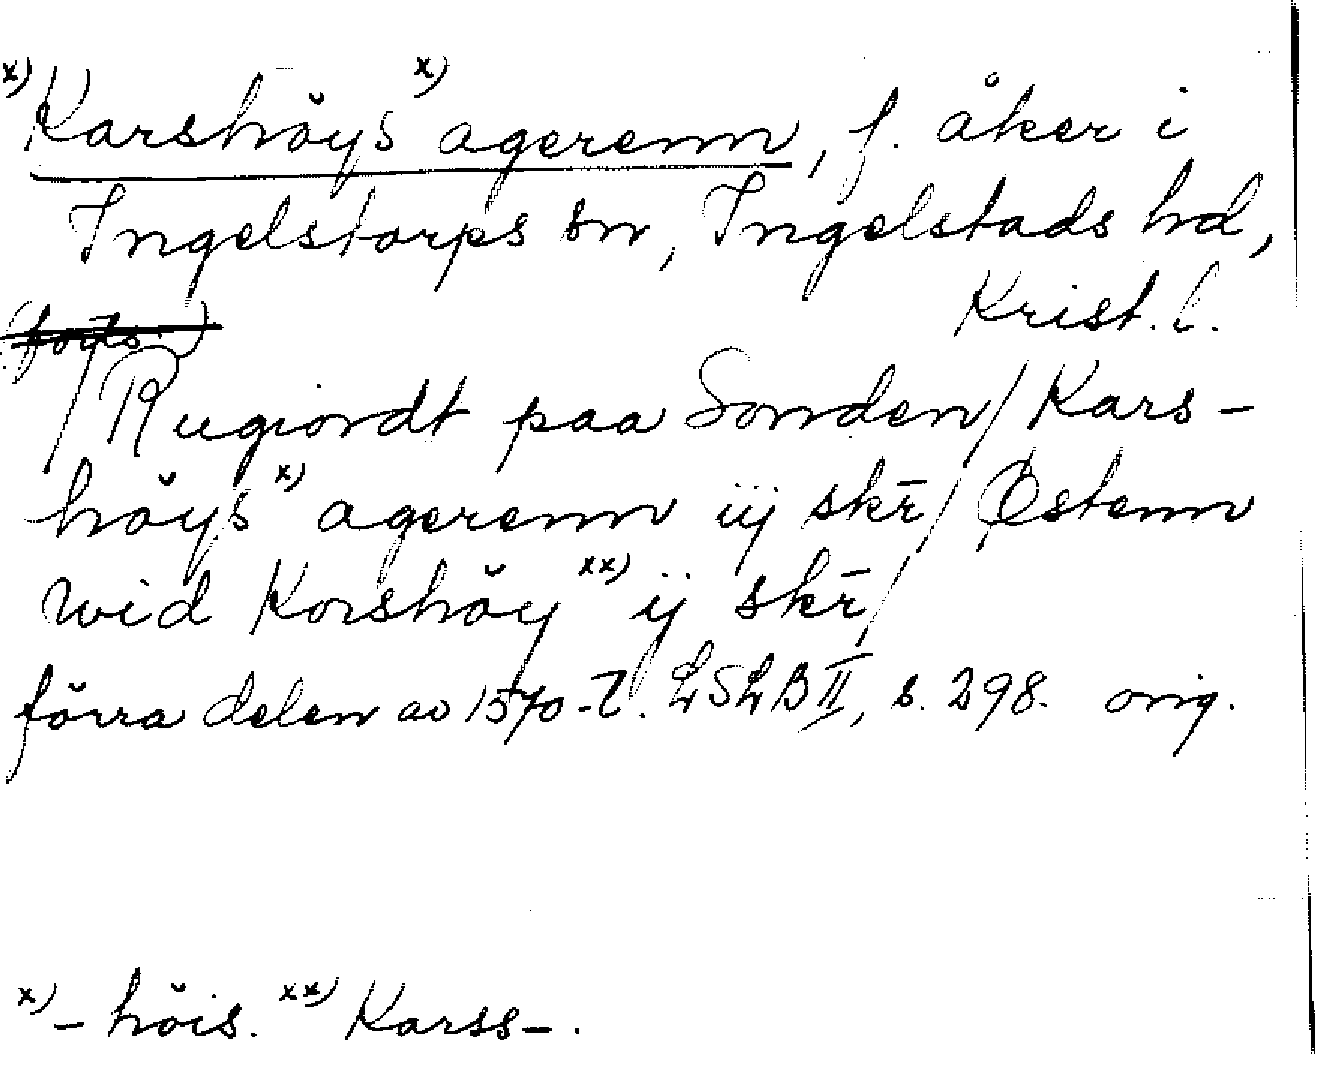 x) Karshŏys x) agerenn, f. åker i
Ingelstorps sn, Ingelstads hd,
(forts.) Krist. l.
/Rugiordt paa Sonden/ Kars-
hŏys x) agerenn iij skr̄/ Østenn
wid Korshŏy xx) ij skr̄/
förra delen av 1570-t. LSLB II, s. 298. orig.
x) - hŏis. xx) Karss-.